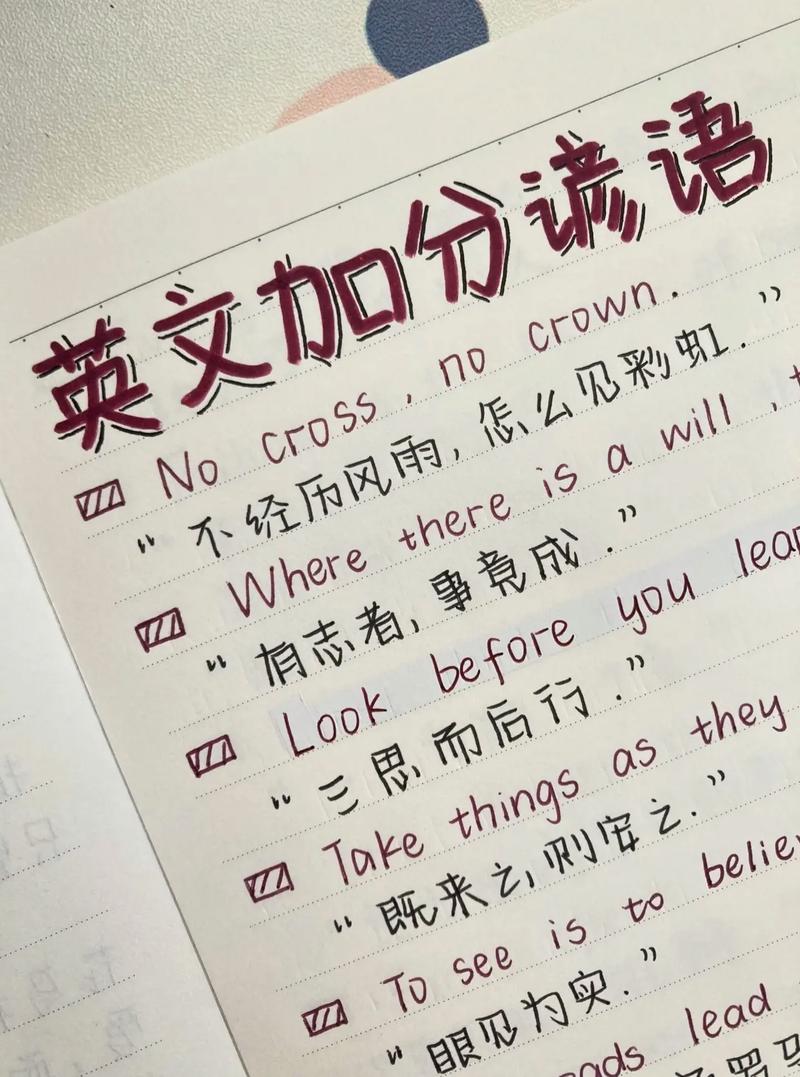 英文加分谚语
No cross, no crown.
“不经历风雨,怎么见彩虹.”
Where there is a will, t
“有志者,事竟成.”
Look before you leap
“三思而后行.”
Take things as they
“既来之,则安之.”
To see is to believe
“眼见为实.”
oads lead
罗马